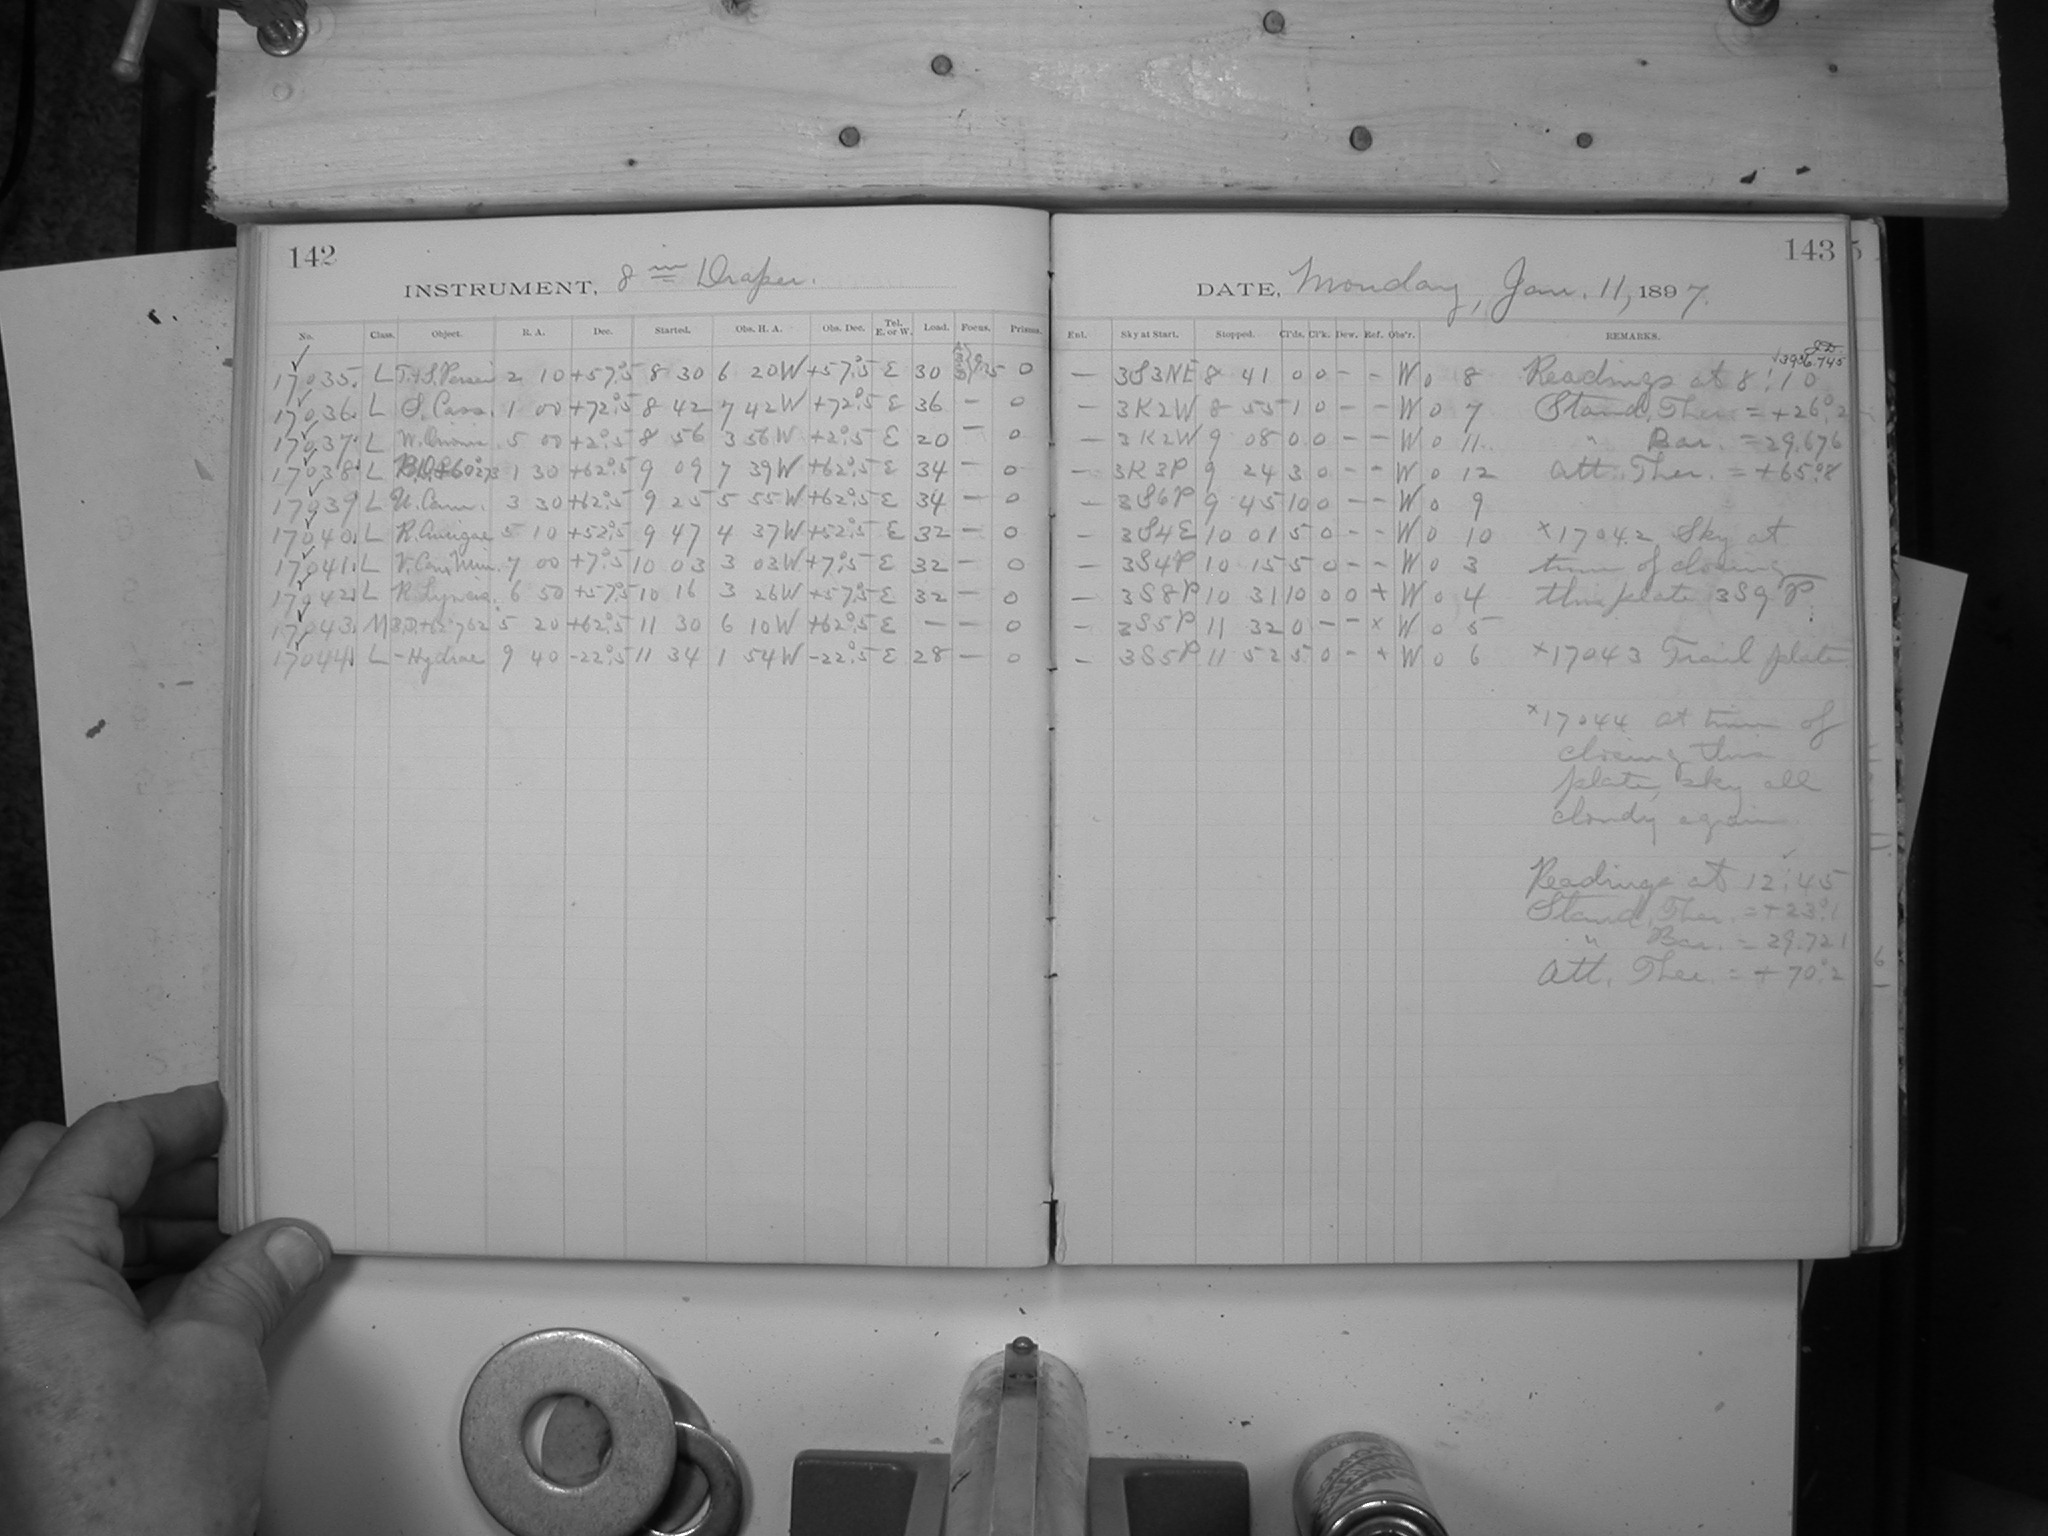 142
INSTRUMENT, 8 in Draper.
No. Class. Object. R. A. Dec. Started. Obs. H. A. Obs. Dec. Tel. E. or W. Load. Focus. Prisms.
17035 L T.&S. Persei 2 10 +57°.5 8 30 6 20W +57°.5 E 30 0
17036 L S. Cass. 1 00 +72°.5 8 42 7 42W +72°.5 E 36 – 0
17037 L W. Orionis 5 00 +2°.5 8 56 3 56W +2°.5 E 20 – 0
17038 L 1 30 +62°.5 9 09 7 39W +62°.5 E 34 – 0
17039 L U. Cam. 3 30 +62°.5 9 25 5 55W +62°.5 E 34 – 0
17040 L R. Aurigae 5 10 +52°.5 9 47 4 37W +52°.5 E 32 – 0
17041 L V. Can. Min. 7 00 +7°.5 10 03 3 03W +7°.5 E 32 – 0
17042 L R. Lyncis 6 50 +57°.5 10 16 3 26W +57°.5 E 32 – 0
17043 M B.D.+62°762 5 20 +62°.5 11 30 6 10W +62°.5 E – – 0
17044 L – Hydrae 9 40 -22°.5 11 34 1 54W -22°.5 E 28 – 0
143
DATE, Monday, Jan. 11, 1897.
Enl. Sky at Start. Stopped. Cl'ds. Cl'k. Dew. Ref. Obs'r. REMARKS.
– 3S3NE 8 41 0 0 – – W 0 8 Readings at 8:10
– 3K2W 8 55 1 0 – – W 0 7 Stand. Ther. = +26°.2
– 3K2W 9 08 0 0 – – W 0 11 " Bar. = 29.676
– 3K3P 9 24 3 0 – – W 0 12 Att. Ther. = +65°.8
– 3S6P 9 45 10 0 – – W 0 9
– 3S4E 10 01 5 0 – – W 0 10 ×17042 Sky at
– 3S4P 10 15 5 0 – – W 0 3 time of closing
– 3S8P 10 31 10 0 0 × W 0 4 this plate 3S9P
– 3S5P 11 32 0 – – × W 0 5
– 3S5P 11 52 5 0 – × W 0 6 ×17043 Trail plate
×17044 at time of
closing this
plate, sky all
cloudy again.
Readings at 12:45
Stand. Ther. = +23°.1
" Bar. = 29.721
Att. Ther. = +70°.2